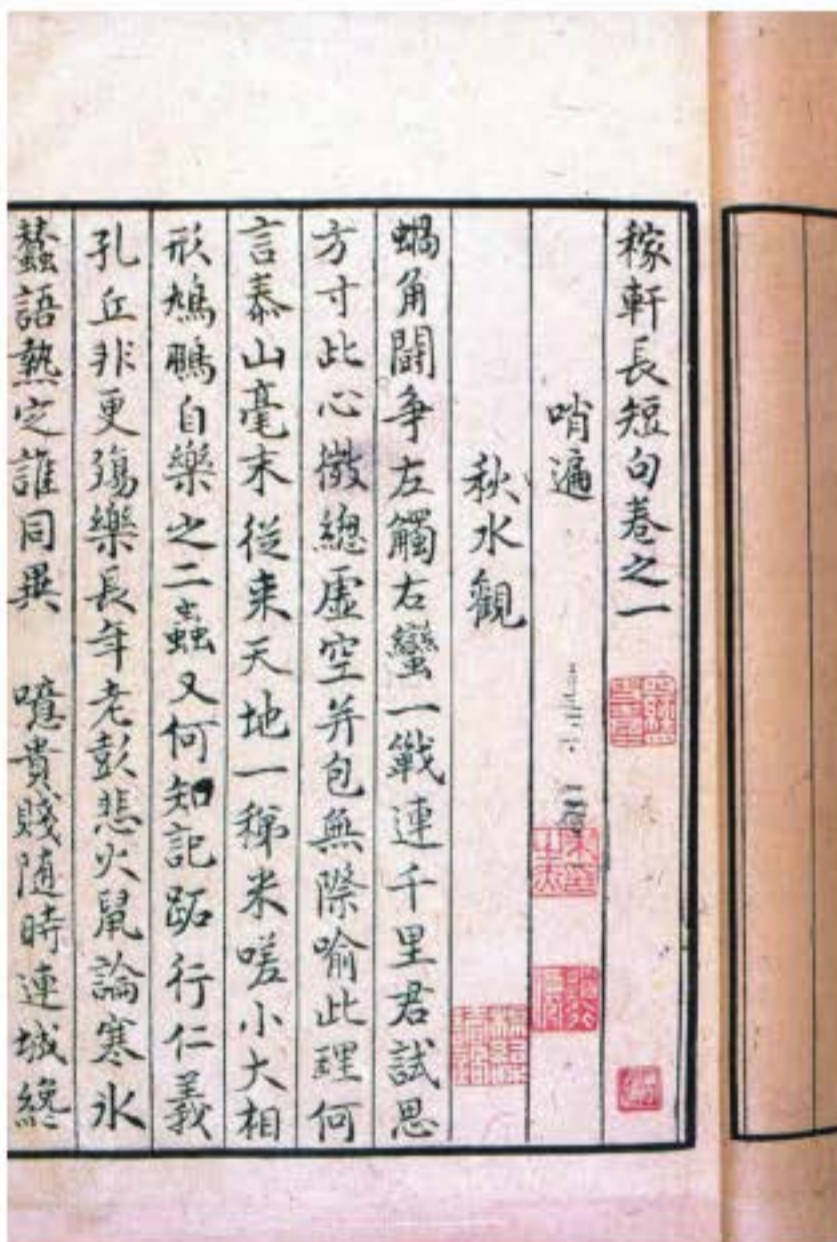 稼軒長短句卷之一
哨遍
秋水觀
蝸角鬭争左觸右蠻一戰連千里君試思
方寸此心微總虛空并包無際喻此理何
言泰山毫末從来天地一稊米嗟小大相
形鳩鵬自樂之二蟲又何知記跖行仁義
孔丘非更殤樂長年老彭悲火鼠論寒氷
蠶語熱定誰同異　噫貴賤随時連城纔